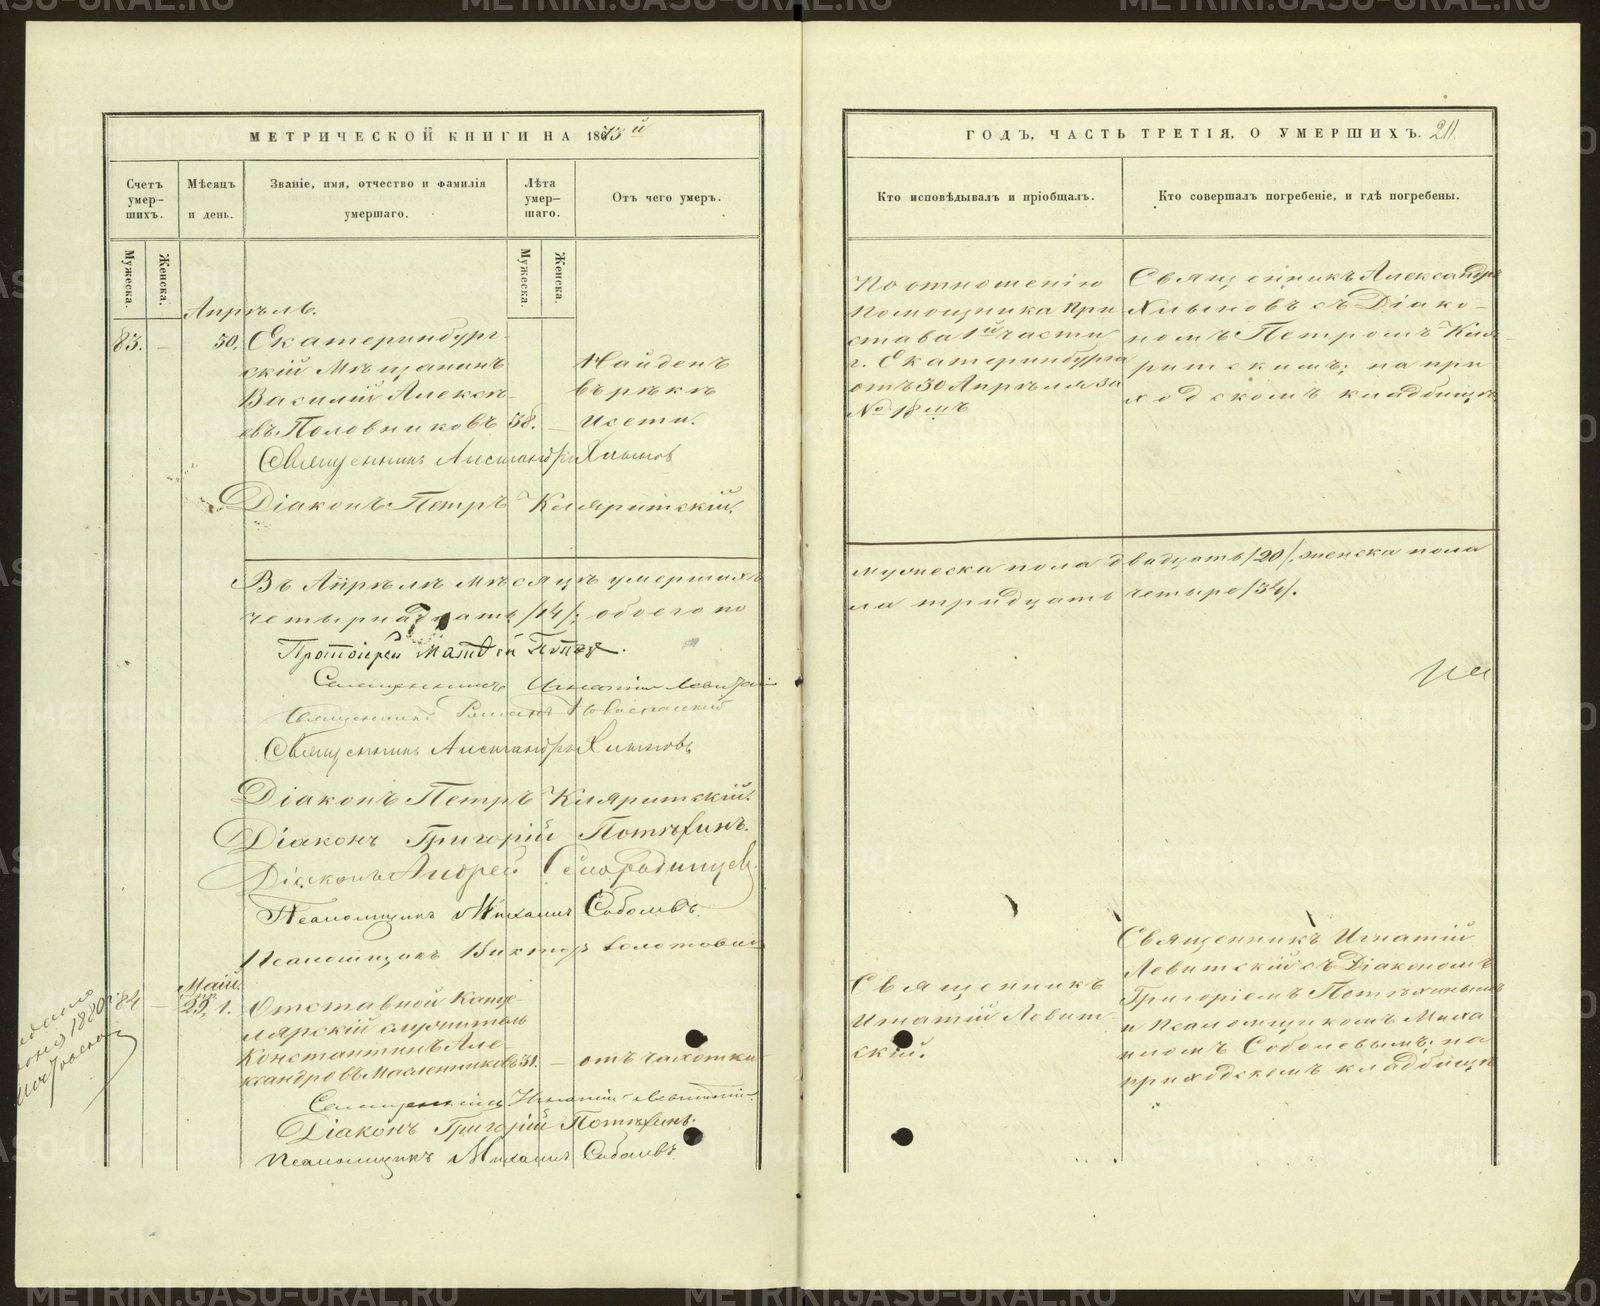 МЕТРИЧЕСКОЙ КНИГИ НА 1873й
Счетъ умер-шихъ.
Мѣсяцъ и день.
Званіе, имя, отчество и фамилія умершаго.
Лѣта умер-шаго.
Отъ чего умеръ.
Мужеска.
Женска.
Мужеска.
Женска.
Апрѣль.
83. — 30. Екатеринбург-
скій Мѣщанинъ Найденъ
Василій Алексѣ- въ рѣкѣ
евъ Половниковъ 38. — Исети.
Священникъ Александръ Хлыновъ
Діаконъ Петръ Кляритскій.
Въ Апрѣлѣ мѣсяцѣ умершихъ
четырнадцать /14/; обоего по
Протоіерей Матвѣй Поповъ.
Священникъ Игнатій Левитскій
Священникъ
Священникъ Александръ Хлыновъ
Діаконъ Петръ Кляритскій.
Діаконъ Григорій Потѣхинъ.
Діаконъ Андрей Смородинцевъ
Псаломщикъ Михаилъ Соболевъ.
Псаломщикъ Викторъ Золотовъ
Май.
84 — 1. Отставной Канце-
лярскій служитель
Константинъ Але-
ксандровъ Масленниковъ 31. — отъ чахотки
Священникъ Игнатій Левитскій.
Діаконъ Григорій Потѣхинъ.
Псаломщикъ Михаилъ Соболевъ.
1880
ГОДЪ, ЧАСТЬ ТРЕТІЯ, О УМЕРШИХЪ. 211.
Кто исповѣдывалъ и пріобщалъ.
Кто совершалъ погребеніе, и гдѣ погребены.
По отношенію
Помощника При
става 1й части
г. Екатеринбурга
отъ 30 Апрѣля за
№ 18мъ
Священникъ Александръ
Хлыновъ съ Діако-
номъ Петромъ Кля-
ритскимъ; на при
ходскомъ кладбищѣ
мужеска пола двадцать /20/, женска пола
ла тридцать четыре /34/.
Священникъ
Игнатій Левит-
скій.
Священникъ Игнатій
Левитскій съ Діакономъ
Григоріемъ Потѣхинымъ
и Псаломщикомъ Миха
иломъ Соболевымъ; на
приходскомъ кладбищѣ
METRIKI.GASO-URAL.RU